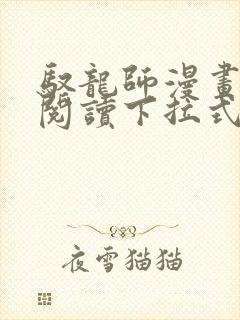 馭龍師漫畫
閱讀下拉式
夜雪猫猫